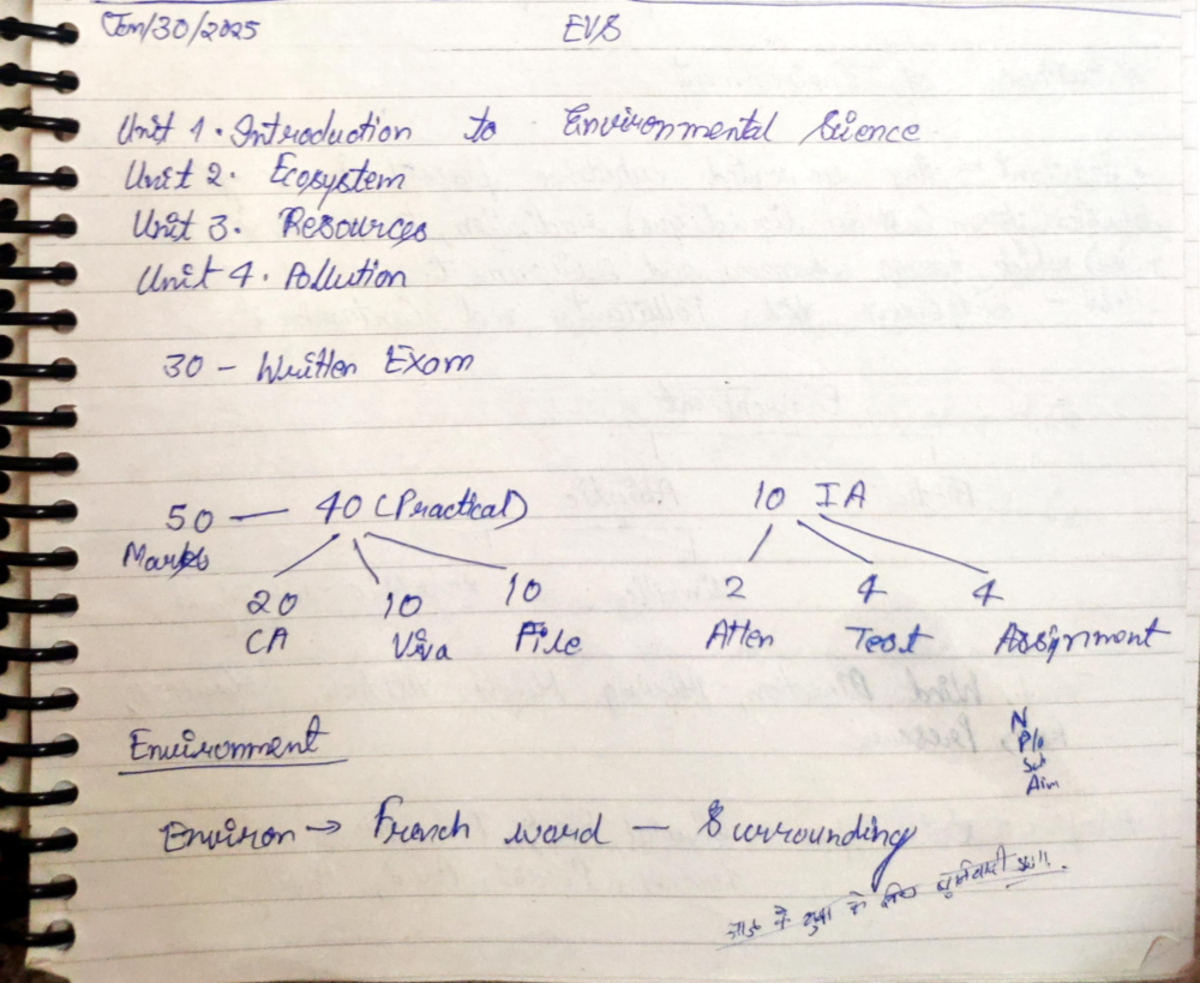 Jan/30/2025 EVS
Unit 1. Introduction to Environmental Science
Unit 2. Ecosystem
Unit 3. Resources
Unit 4. Pollution
30 - Written Exam
50 — 40 (Practical) 10 IA
Marks
20 10 10 2 4 4
CA Viva File Atten Test Assignment
Environment
N
P/o
Sub
Aim
Environ → French word — Surrounding
के